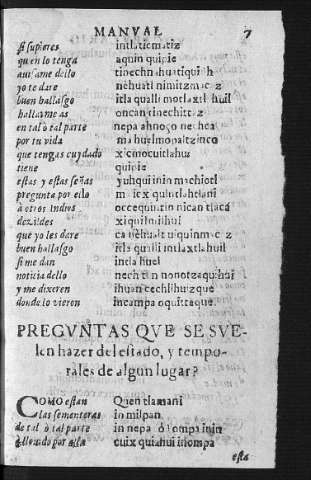 MANVAL 7
si supieres intlaticmatiz
quien lo tenga aquin quipie
auisame dello tinechnahuatiquih
yo te dare nehuatl nimitzmacaz
buen hallasgo itla qualli motlaxtlahuil
hallarme as oncan tinechittaz
en tal o tal parte nepa ahnoço nechca
por tu vida ma huelmopaltzinco
que tengas cuydado xicmocuitlahui
tiene quipie
estas y estas señas yuhqui inin machiotl
pregunta por ello
a otros Indios occequintin nican tlaca
dezildes xiquimilhui
que yo les dare ca nehuatl niquinmacaz
buen hallasgo itla qualli intlaxtlahuil
si me dan intla
noticia dello nechtlan nonotzaquihui
y me dixeren ihuan nechilhuizque
donde lo vieren incampa oquittaque.
PREGVNTAS QVE SE SVE-
len hazer del estado, y tempo-
rales de algun lugar?
COMO estan Quen tlamani
las sementeras in milpan
de tal o tal parte in nepa ó ompa inin
a llouido por alla cuix quiahui inompa
esta